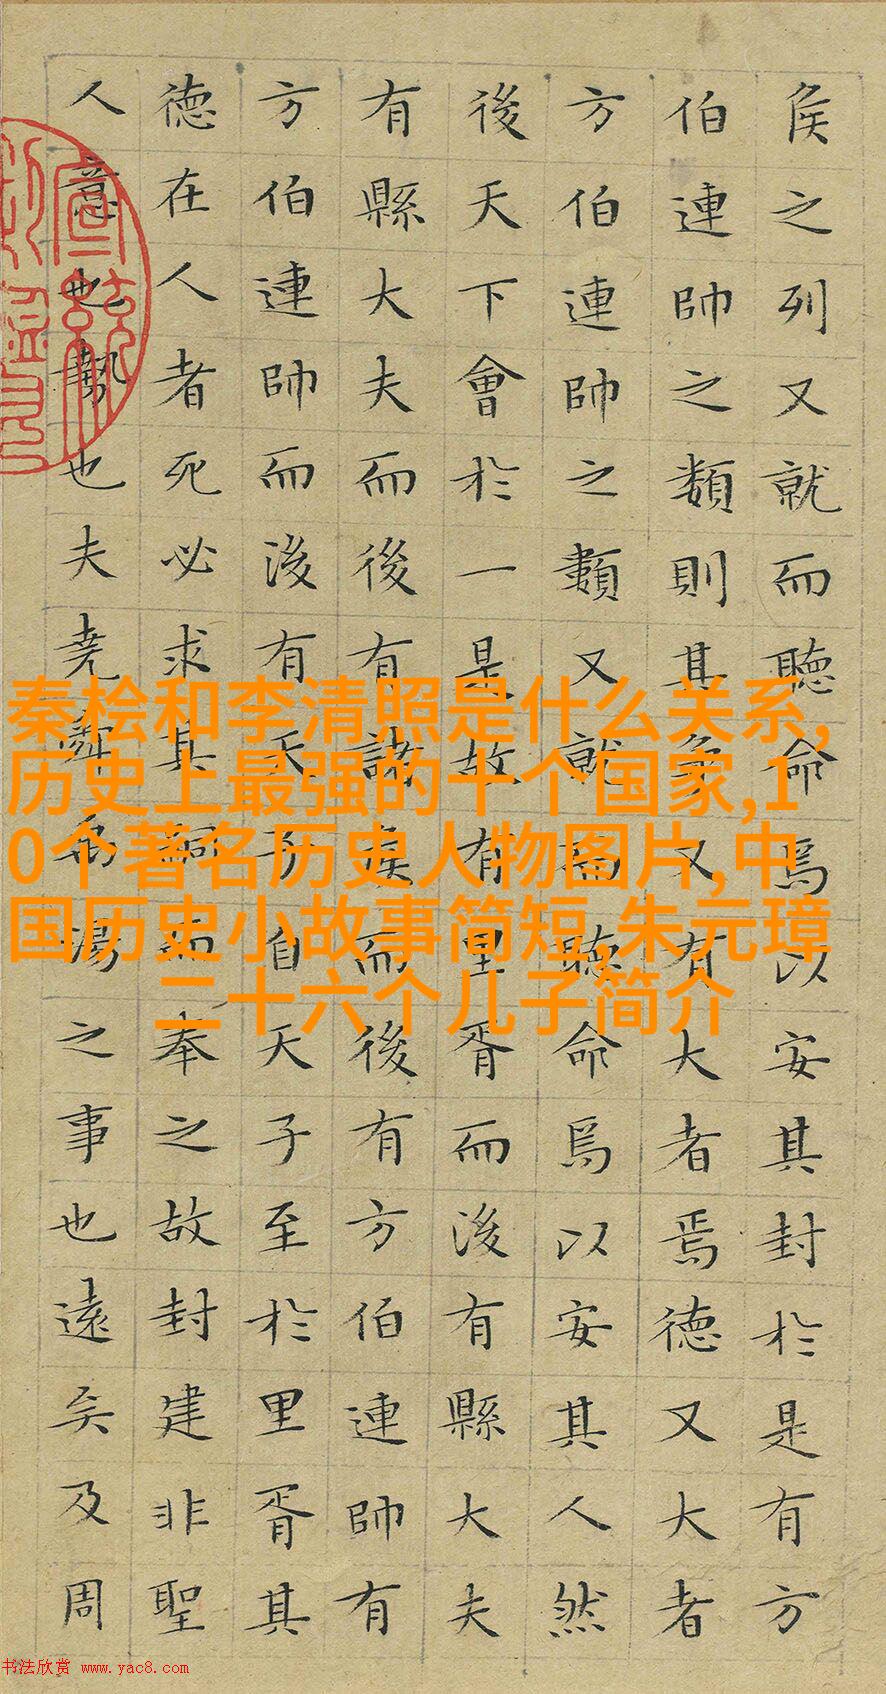 侯之列又就而聽命焉以安其封於是有方
伯連帥之類則其爭又有大者焉德又大者
方伯連帥之類又就而聽命焉以安其人然
後天下會於一是故有里胥而後有縣大夫
有縣大夫而後有諸侯而後有方伯連帥有
方伯連帥而後有天子自天子至於里胥其
德在人者死必求其嗣而奉之故封建非聖
人意也勢也夫堯舜禹湯之事也遠矣及周
秦桧和李清照是什么关系,
历史上最强的十个国家,1
0个著名历史人物图片,中
国历史小故事简短,朱元璋
二十六个儿子简介
书法欣赏 www.yac8.com